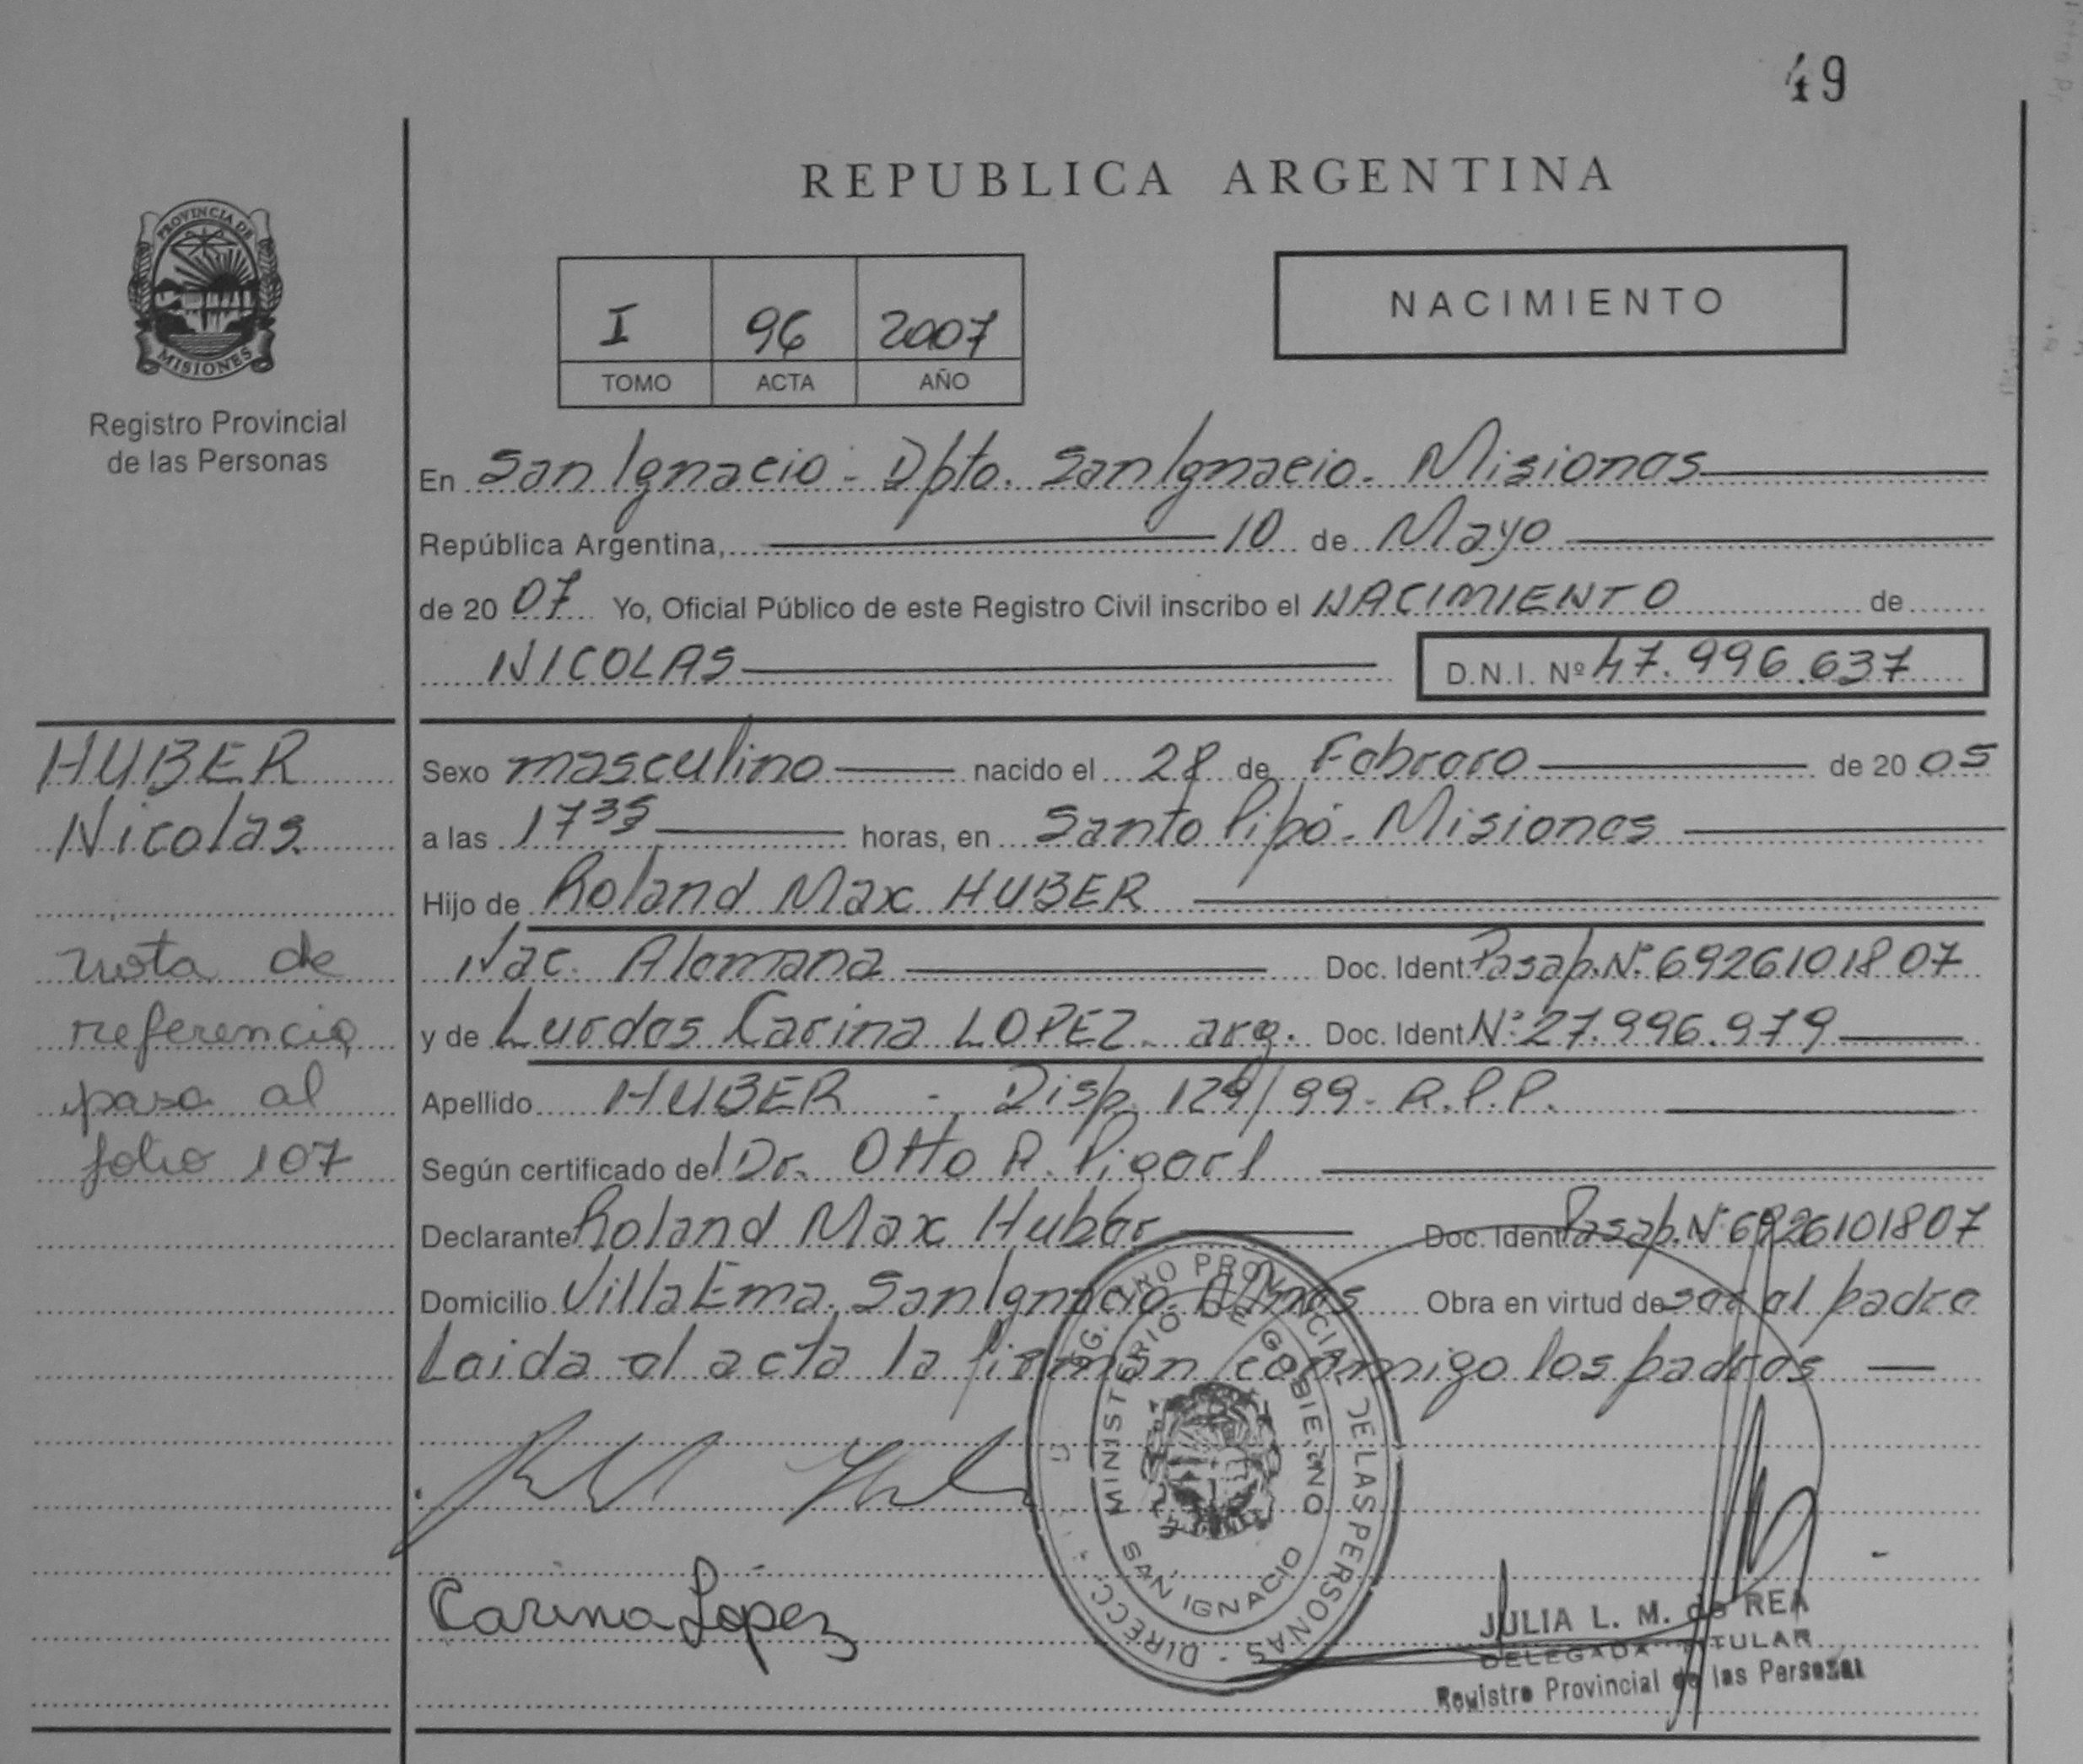 49
REPUBLICA ARGENTINA
PROVINCIA DE
MISIONES
Registro Provincial
de las Personas
I 96 2007
TOMO ACTA AÑO
NACIMIENTO
En San Ignacio - Dpto. San Ignacio - Misiones
República Argentina, 10 de Mayo
de 20 07 Yo, Oficial Público de este Registro Civil inscribo el NACIMIENTO de
NICOLAS D.N.I. Nº 47.996.637
HUBER
Nicolas
nota de
referencia
pasa al
folio 107
Sexo masculino nacido el 28 de Febrero de 20 05
a las 17 35 horas, en Santo Pipó - Misiones
Hijo de Roland Max HUBER
Nac. Alemana Doc. Ident. Pasap. Nº 6926101807
y de Lurdes Carina LOPEZ - arg. Doc. Ident. Nº 27.996.979
Apellido HUBER - Disp. 129/99 - R.P.P.
Según certificado del Dr. Otto R.
Declarante Roland Max Huber Doc. Ident. Pasap. Nº 6926101807
Domicilio Villa Ema. San Ignacio. Mnes Obra en virtud de ser el padre
Leida el acta la firman conmigo los padres
Carina López
REG..TRO PROVINCIAL DE LAS PERSONAS - DIRECC
MINISTERIO DE GOBIERNO
SAN IGNACIO
JULIA L. M. de REA
DELEGADA TITULAR
Registro Provincial de las Personas